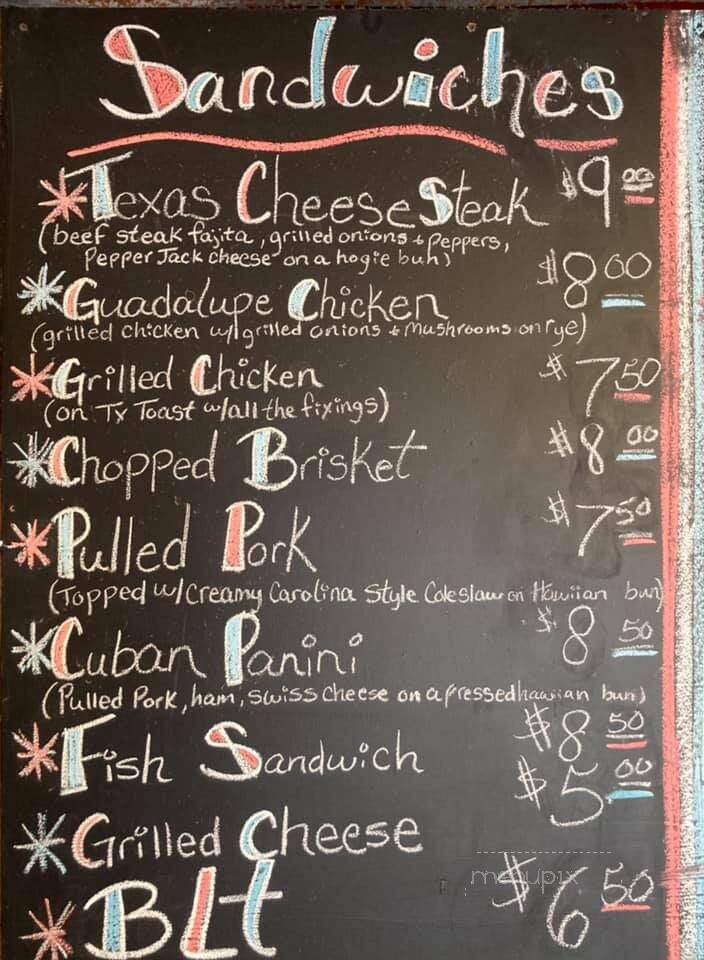 Sandwiches
*Texas Cheese Steak $9 00
(beef steak fajita, grilled onions + peppers,
Pepper Jack cheese on a hogie bun)
*Guadalupe Chicken $8 00
(grilled chicken w/grilled onions + mushrooms on rye)
*Grilled Chicken $7 50
(on Tx Toast w/all the fixings)
*Chopped Brisket $8 00
*Pulled Pork $7 50
(Topped w/Creamy Carolina Style Coleslaw on Hawiian bun)
*Cuban Panini $8 50
(Pulled Pork, ham, swiss cheese on a pressed hawiian bun)
*Fish Sandwich $8 50
*Grilled Cheese $5 00
*BLt $6 50
menupix